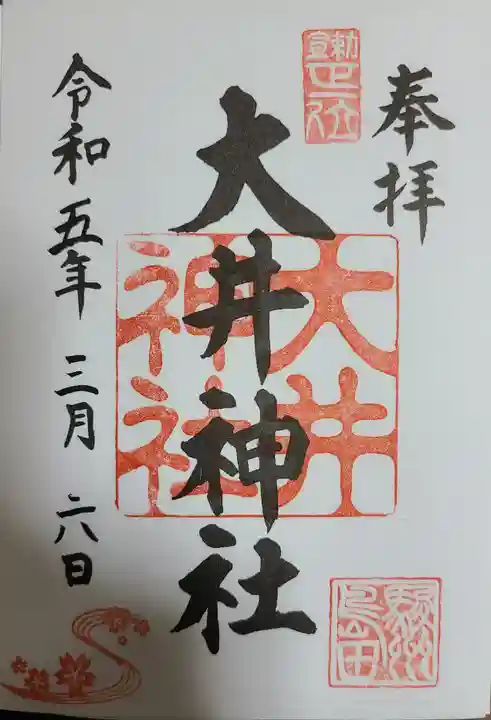 奉拝
勅宣正一位
大井神社
大井神社
駿州島田
令和五年三月六日